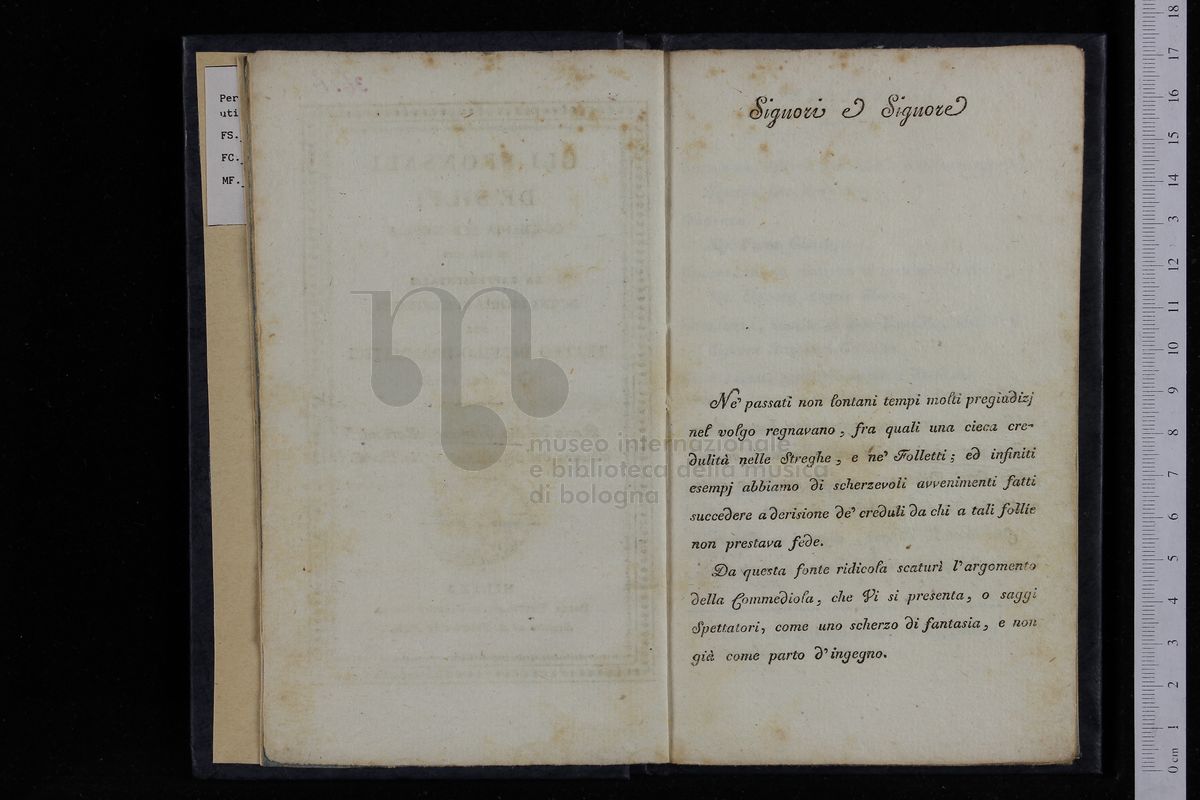 Per
uti
FS.
FC.
MF.
Signori e Signore
Ne' passati non lontani tempi molti pregiudizj
nel volgo regnavano, fra quali una cieca cre-
dulità nelle Streghe, e ne' Folletti; ed infiniti
esempj abbiamo di scherzevoli avvenimenti fatti
succedere a derisione de' creduli da chi a tali follie
non prestava fede.
Da questa fonte ridicola scaturì l'argomento
della Commediola, che Vi si presenta, o saggi
Spettatori, come uno scherzo di fantasia, e non
già come parto d'ingegno.
museo internazionale
e biblioteca della musica
di bologna
0 cm 1 2 3 4 5 6 7 8 9 10 11 12 13 14 15 16 17 18